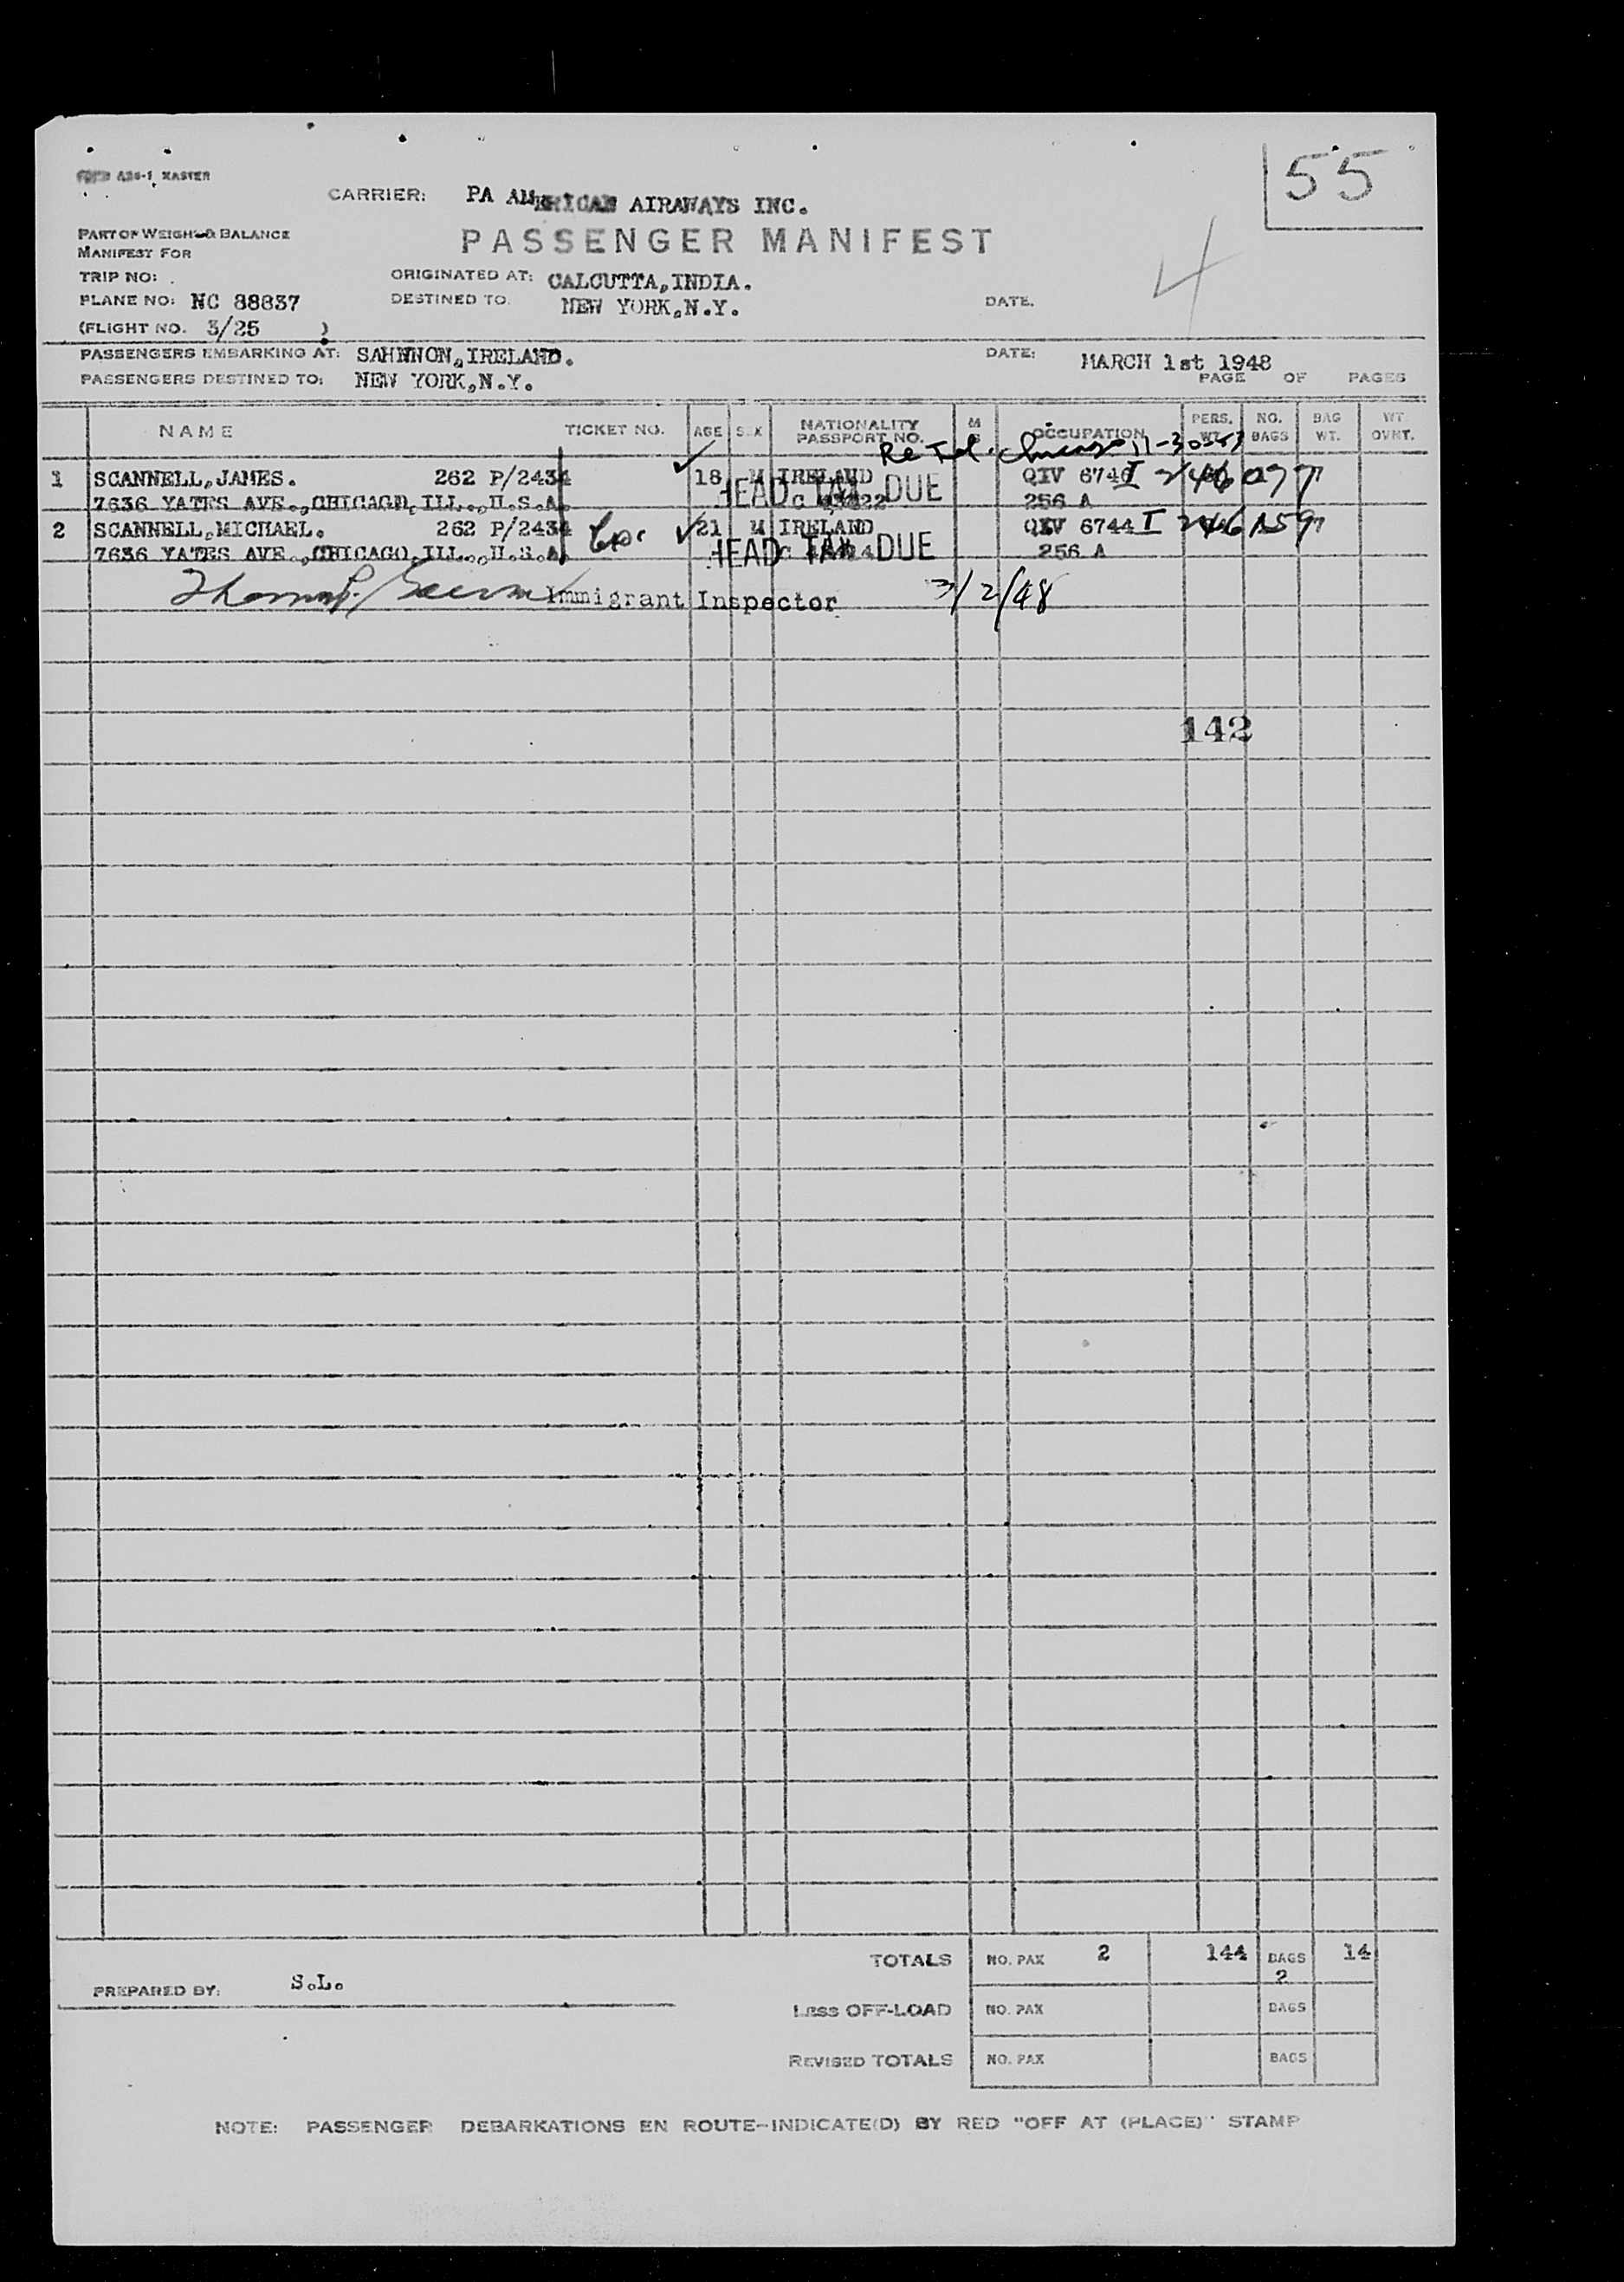 FORM A26-1 MASTER
55
CARRIER: PA AMERICAN AIRAWAYS INC.
PART OF WEIGHT & BALANCE
MANIFEST FOR
PASSENGER MANIFEST
4
TRIP NO:
ORIGINATED AT: CALCUTTA,INDIA.
PLANE NO: NC 88837
DESTINED TO: NEW YORK,N.Y.
DATE.
(FLIGHT NO. 3/25 )
PASSENGERS EMBARKING AT: SAHNNON,IRELAND.
DATE: MARCH 1st 1948
PASSENGERS DESTINED TO: NEW YORK,N.Y.
PAGE OF PAGES
NAME TICKET NO. AGE SEX NATIONALITY PASSPORT NO. OCCUPATION PERS. WT. NO. BAGS BAG WT. WT. OVNT.
Re Tel. Chicago
1 SCANNELL,JAMES. 262 P/2434 18 M IRELAND QIV 6746
7636 YATES AVE.,CHICAGO,ILL.,U.S.A. HEAD TAX DUE 256 A
2 SCANNELL,MICHAEL. 262 P/2434 21 M IRELAND QIV 6744
7636 YATES AVE.,CHICAGO,ILL.,U.S.A. HEAD TAX DUE 256 A
Immigrant Inspector 3/2/48
142
TOTALS NO. PAX 2 144 BAGS 2 14
PREPARED BY: S.L.
Less OFF-LOAD NO. PAX BAGS
REVISED TOTALS NO. PAX BAGS
NOTE: PASSENGER DEBARKATIONS EN ROUTE-INDICATE(D) BY RED "OFF AT (PLACE)" STAMP